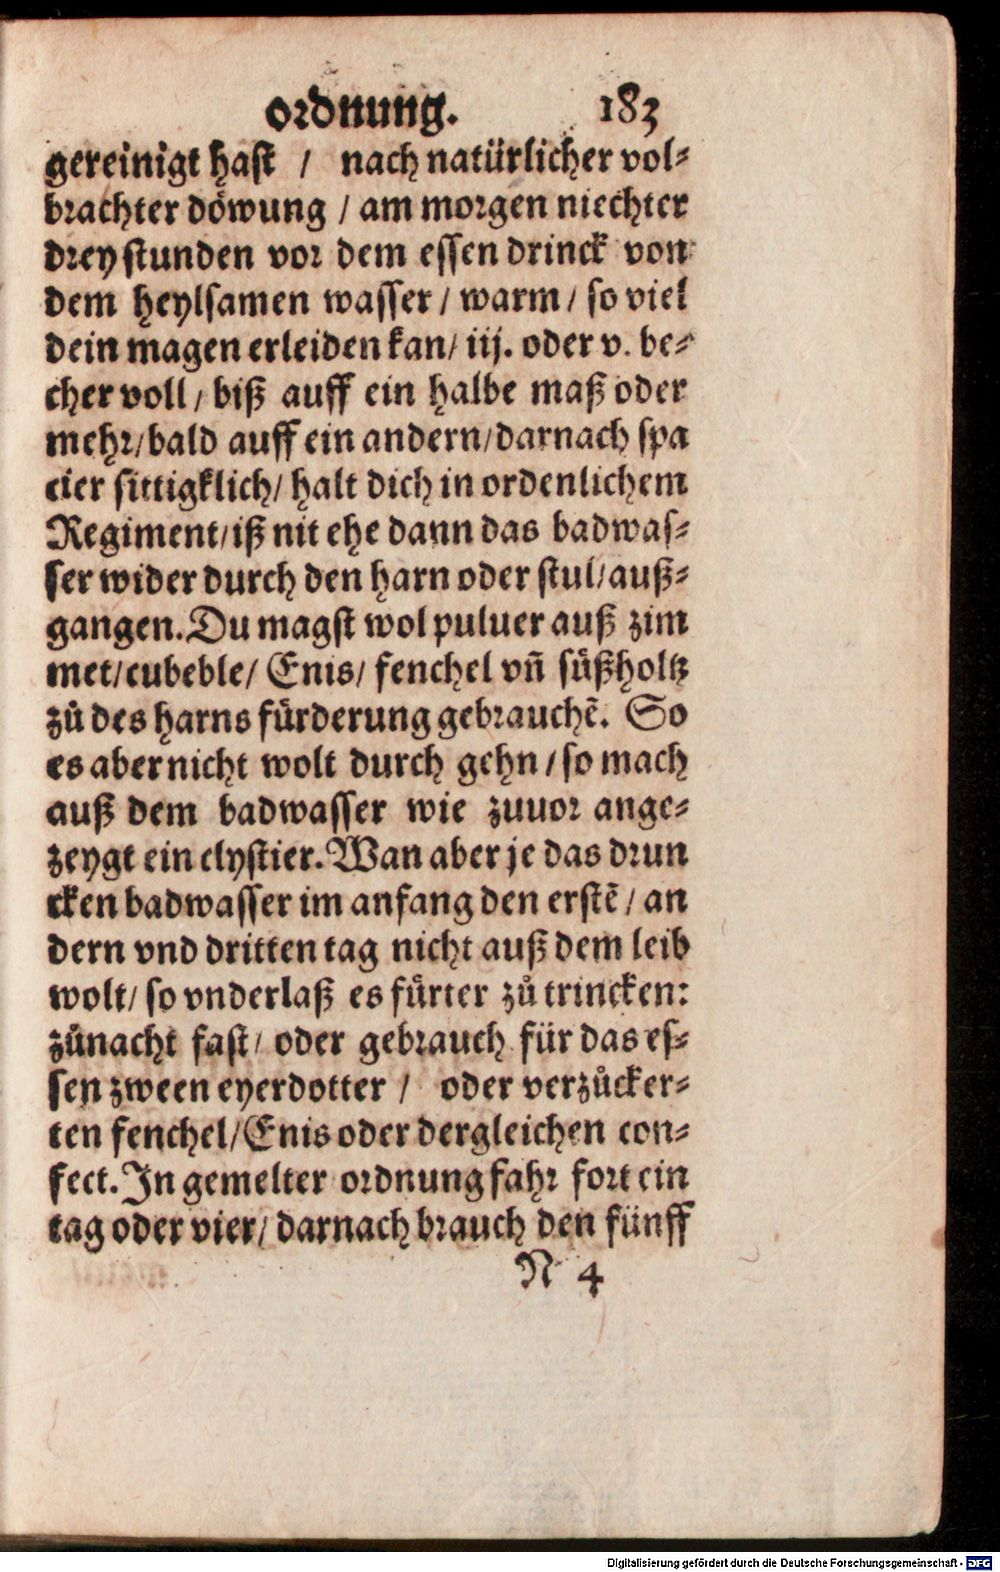 ordnung. 183
gereinigt hast / nach natürlicher vol-
brachter döwung / am morgen niechter
drey stunden vor dem essen drinck von
dem heylsamen wasser / warm / so viel
dein magen erleiden kan / iij. oder v. be-
cher voll / biß auff ein halbe maß oder
mehr / bald auff ein andern / darnach spa
cier sittigklich / halt dich in ordenlichem
Regiment / iß nit ehe dann das badwas-
ser wider durch den harn oder stul / auß-
gangen. Du magst wol puluer auß zim
met / cubeble / Enis / fenchel vñ süßholtz
zů des harns fürderung gebrauchẽ. So
es aber nicht wolt durch gehn / so mach
auß dem badwasser wie zuuor ange-
zeygt ein clystier. Wan aber je das drun
cken badwasser im anfang den erstẽ / an
dern vnd dritten tag nicht auß dem leib
wolt / so vnderlaß es fürter zů trincken:
zůnacht fast / oder gebrauch für das es-
sen zween eyerdotter / oder verzůcker-
ten fenchel / Enis oder dergleichen con-
fect. In gemelter ordnung fahr fort ein
tag oder vier / darnach brauch den fünff
N 4
Digitalisierung gefördert durch die Deutsche Forschungsgemeinschaft - DFG